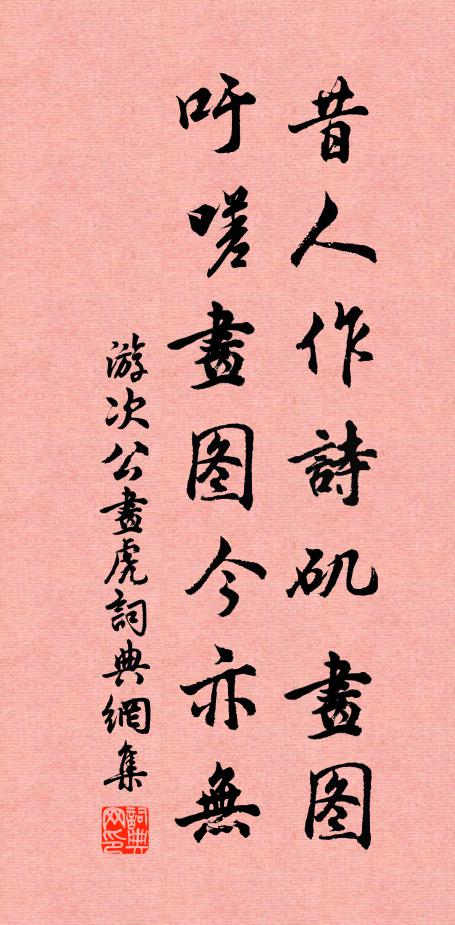 昔人作詩矶畫图
吁嗟畫图今亦無
游次公畫虎詞典網集
詞典
网印